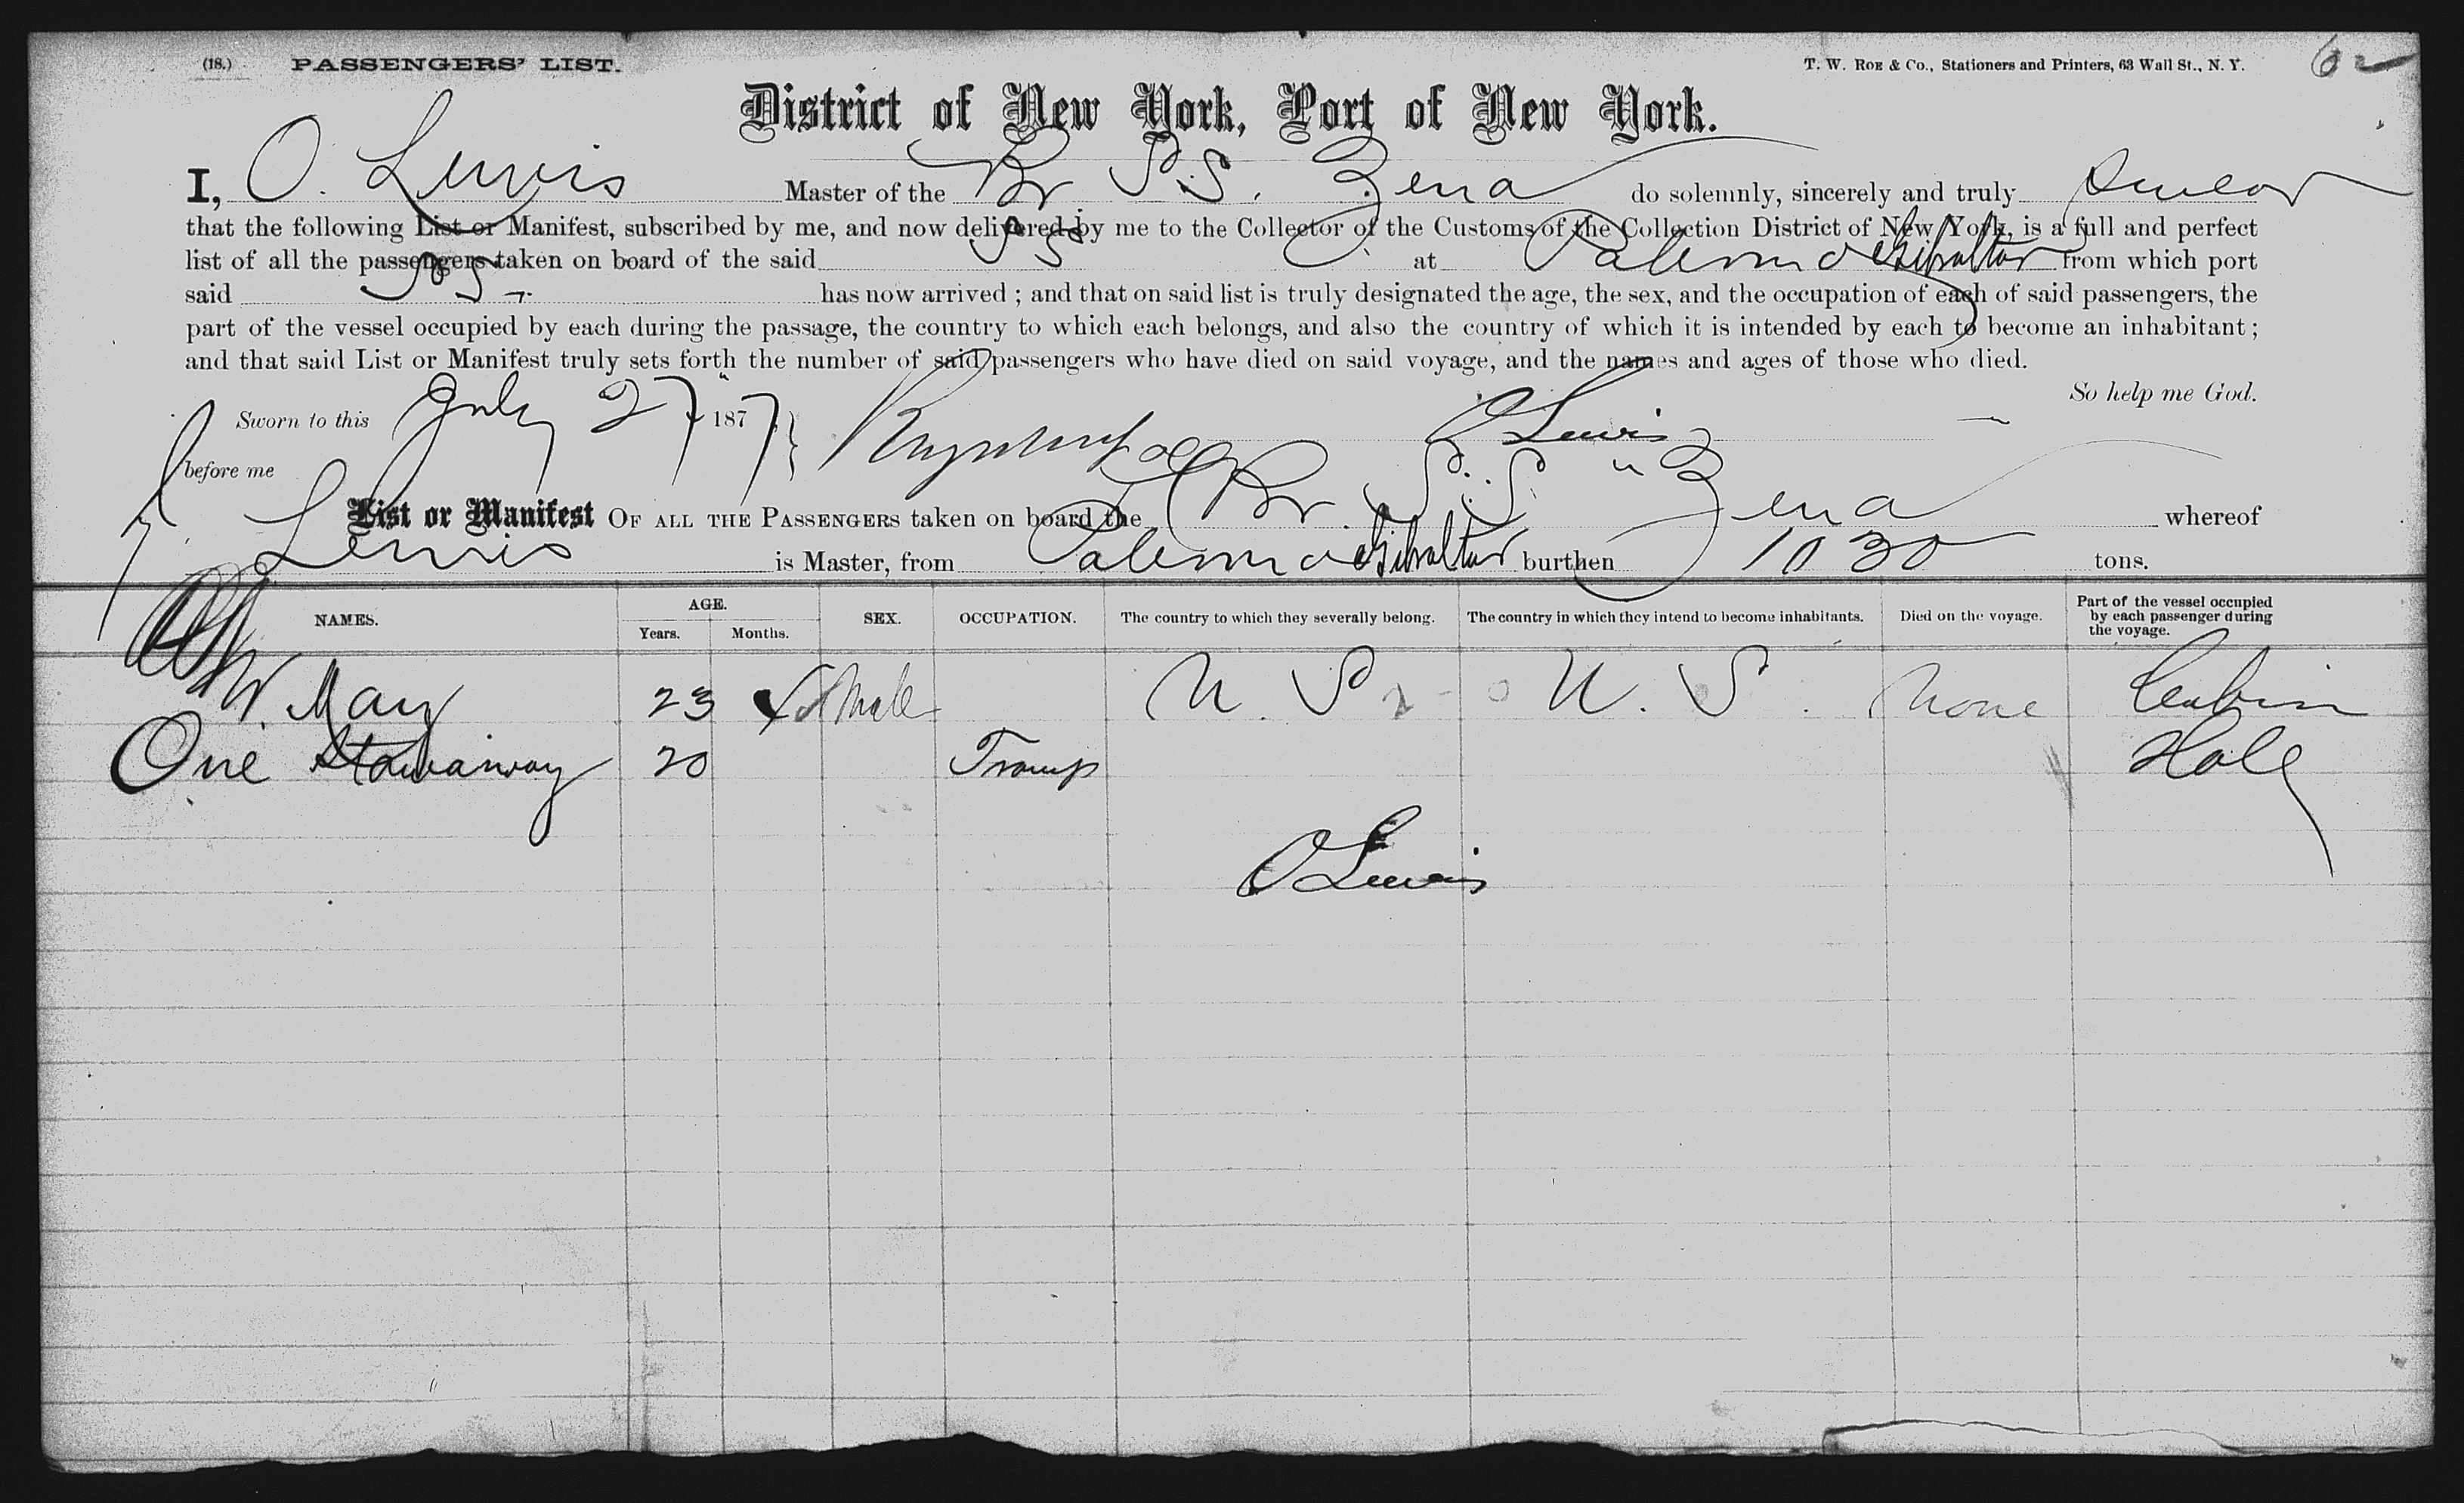 (18.) PASSENGERS' LIST. T. W. ROE & Co., Stationers and Printers, 63 Wall St., N. Y. 62
District of New York, Port of New York.
I, O. Lewis Master of the Br S.S. Zena do solemnly, sincerely and truly swear
that the following List or Manifest, subscribed by me, and now delivered by me to the Collector of the Customs of the Collection District of New York, is a full and perfect
list of all the passengers taken on board of the said SS at Palermo & Gibraltar from which port
said SS has now arrived ; and that on said list is truly designated the age, the sex, and the occupation of each of said passengers, the
part of the vessel occupied by each during the passage, the country to which each belongs, and also the country of which it is intended by each to become an inhabitant ;
and that said List or Manifest truly sets forth the number of said passengers who have died on said voyage, and the names and ages of those who died.
So help me God.
Sworn to this July 27 1877 O Lewis
before me
List or Manifest OF ALL THE PASSENGERS taken on board the Br. S.S. "Zena whereof
Lewis is Master, from Palermo & Gibraltar burthen 1030 tons.
NAMES. AGE. Years. Months. SEX. OCCUPATION. The country to which they severally belong. The country in which they intend to become inhabitants. Died on the voyage. Part of the vessel occupied by each passenger during the voyage.
W. May 23 Male U. S. U. S. None Cabin
One Stowaway 20 Tramp Hole
O Lewis